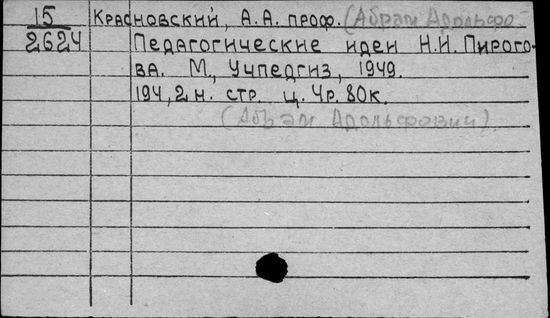 15 Красновский, А.А. проф. (Абрам Адольфо
2624 Педагогические идеи Н.И. Пирого-
ва. М., Учпедгиз, 1949.
194, 2 н. стр ц. 4р. 80к.
(Абрам Адольфович)